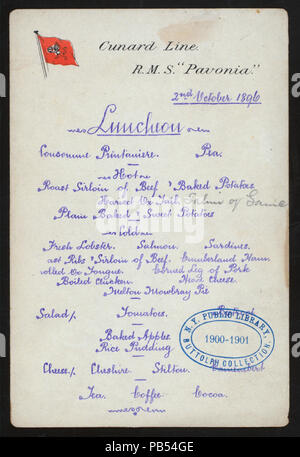 Cunard Line.
R.M.S. "Pavonia."
2nd October 1896
Luncheon
Consommé Printaniere. Pea.
Hot
Roast Sirloin of Beef & Baked Potatoes
Haricot Ox Tail. Salmi of Game
Plain Baked & Sweet Potatoes
Cold
Fresh Lobster. Salmon. Sardines.
Ribs & Sirloin of Beef. Cumberland Ham.
rolled Ox Tongue. Corned Leg of Pork
Boiled Chicken. Head Cheese.
Melton Mowbray Pie
Salad/. Tomatoes.
Baked Apple
Rice Pudding
Cheese/. Cheshire. Stilton. Camembert
Tea. Coffee. Cocoa.
N.Y. PUBLIC LIBRARY,
1900-1901
BUTTOLPH COLLECTION.
alamy
Image ID: PB54GE
www.alamy.com